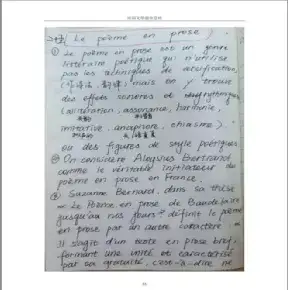 Le poème en prose
① Le poème en prose est un genre
littéraire poétique qui n'utilise
pas les techniques de versification,
mais on y trouve
des effets sonores et rythmiques
(alitération, assonance, harmonie,
imitative, anaphore, chiasme)
ou des figures de style poétiques
② On considère Aloysius Bertrand
comme le véritable initiateur du
poème en prose en France.
③ Suzanne Bernard, dans sa thèse
« Le Poème en prose de Baudelaire
jusqu'à nos jours » définit le poème
en prose par un autre caractère «
Il s'agit d'un texte en prose bref,
formant une unité et caractérisé
par sa gratuité, c'est-à-dire ne